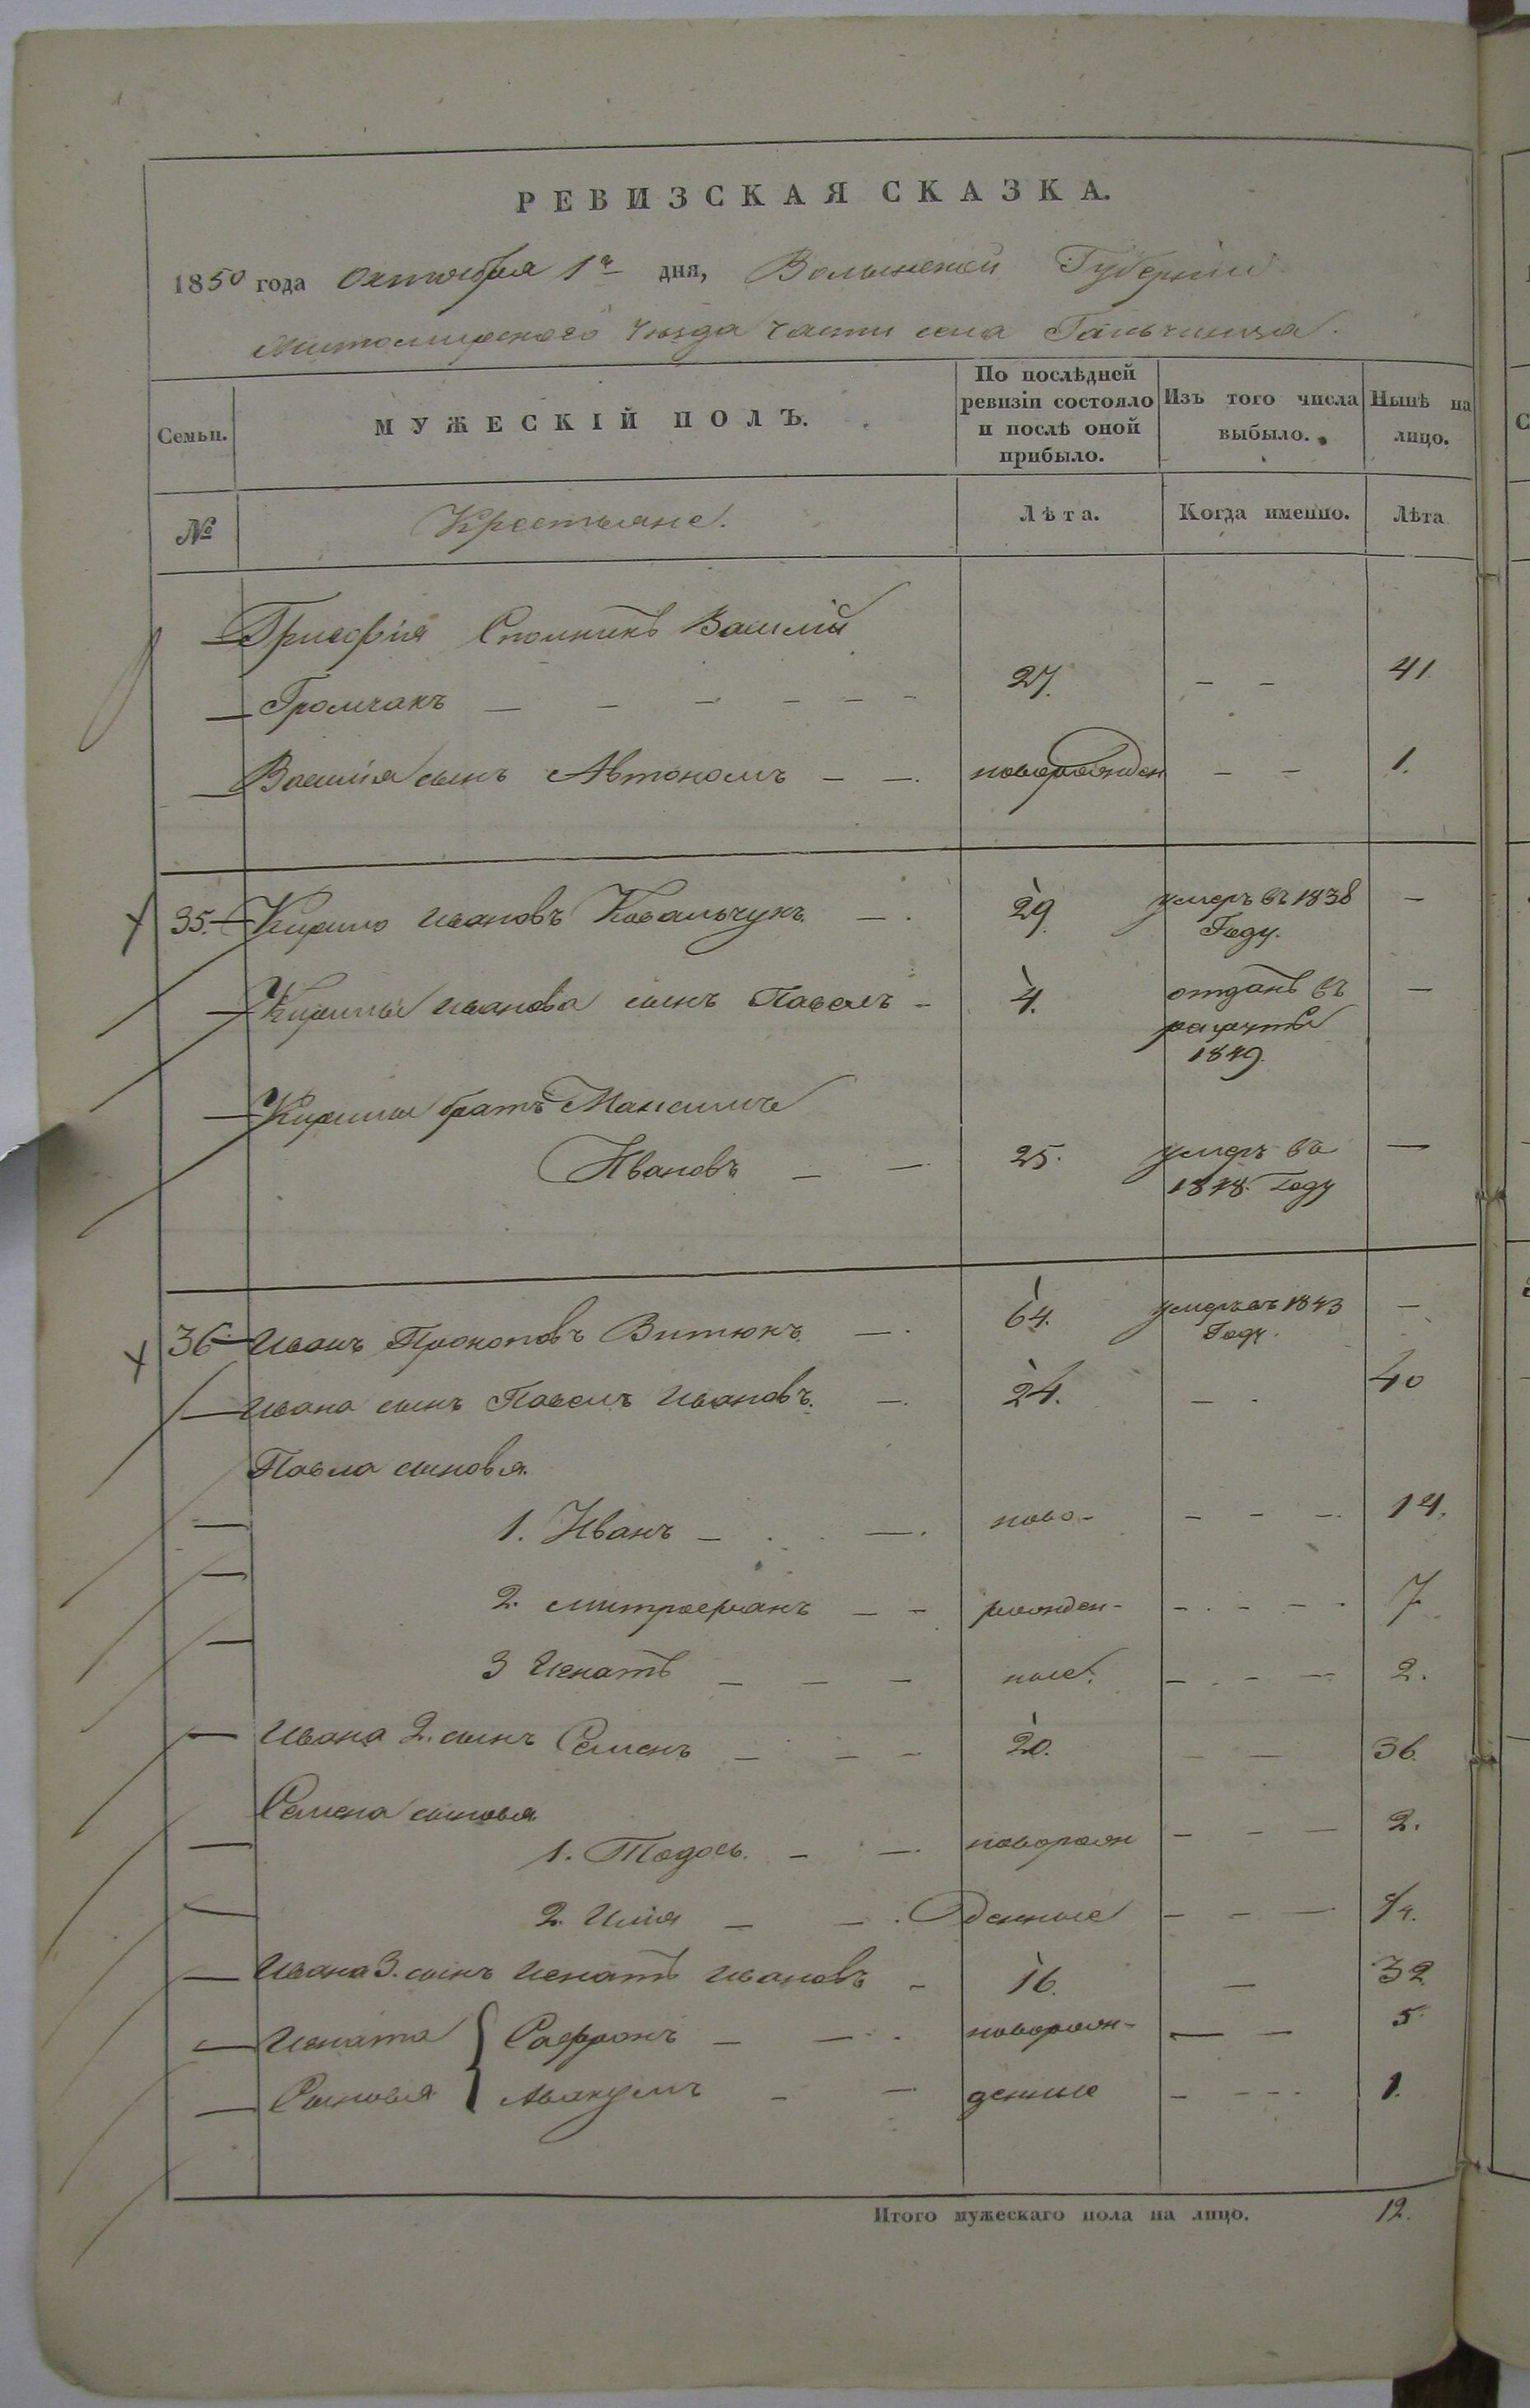 РЕВИЗСКАЯ СКАЗКА.
1850 года Октября 1го дня, Волынской Губернии
Житомирского Уезда части села Гальчинца.
Семьи.
МУЖЕСКІЙ ПОЛЪ.
По послѣдней ревизіи состояло и послѣ оной прибыло.
Изъ того числа выбыло.
Нынѣ на лицо.
№
Крестьяне.
Лѣта.
Когда именно.
Лѣта
Григорія Василій
Громчакъ — — — — — — 27. — — 41.
Василія сынъ Автономъ — — новорожден — — 1.
35. Кирило Ивановъ Ковальчукъ — 29. умеръ въ 1838 Году. —
Кирилы Иванова сынъ Павелъ — 4. отданъ въ рекруты 1849. —
Кирилы братъ Максимъ
Ивановъ — — 25. умеръ въ 1848. Году —
36 Иванъ Прокоповъ Витюкъ — 64. умеръ въ 1843 Году. —
Ивана сынъ Павелъ Ивановъ. — 24. — 40
Павла сыновья.
1. Иванъ — — ново- — — — 14.
2. Митрофанъ — — рожден- — — — 7
3 Игнатъ — — — ные. — — — 2.
Ивана 2. сынъ Семенъ — — — 20. — — 36.
Семена сыновья
1. Тодось. — — новорож — — — 2.
2. Илія — — денные — — —
Ивана 3. сынъ Игнатъ Ивановъ — 16. — 32
Игната { Сафронъ — — новорож- — — 5.
Сыновья { Авакумъ — — денные — — — 1.
Итого мужескаго пола на лицо. 12.